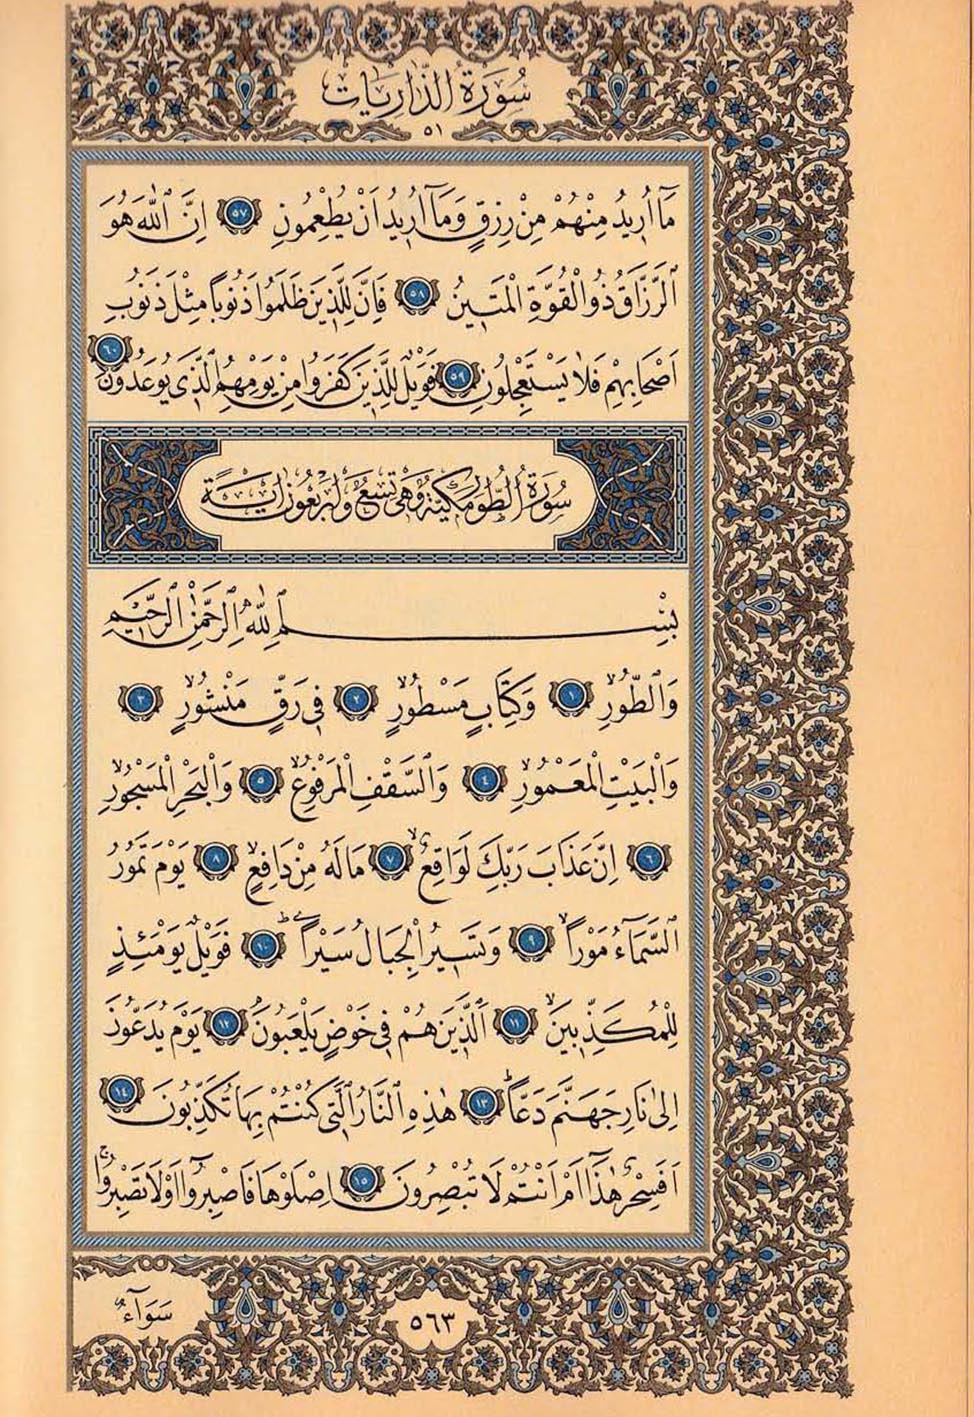 سُورَةُ الذَّارِيَاتِ
٥١
مَٓا اُر۪يدُ مِنْهُمْ مِنْ رِزْقٍ وَمَٓا اُر۪يدُ اَنْ يُطْعِمُونِ ﴿٥٧﴾ اِنَّ اللّٰهَ هُوَ
الرَّزَّاقُ ذُوالْقُوَّةِ الْمَت۪ينُ ﴿٥٨﴾ فَاِنَّ لِلَّذ۪ينَ ظَلَمُوا ذَنُوباً مِثْلَ ذَنُوبِ
اَصْحَابِهِمْ فَلَا يَسْتَعْجِلُونِ ﴿٥٩﴾ فَوَيْلٌ لِلَّذ۪ينَ كَفَرُوا مِنْ يَوْمِهِمُ الَّذ۪ي يُوعَدُونَ ﴿٦٠﴾
سُورَةُ الطُّورِ مَكِّيَّةٌ وَهِيَ تِسْعٌ وَاَرْبَعُونَ اٰيَةً
بِسْمِ اللّٰهِ الرَّحْمٰنِ الرَّح۪يمِ
وَالطُّورِۙ ﴿١﴾ وَكِتَابٍ مَسْطُورٍۙ ﴿٢﴾ ف۪ي رَقٍّ مَنْشُورٍۙ ﴿٣﴾
وَالْبَيْتِ الْمَعْمُورِۙ ﴿٤﴾ وَالسَّقْفِ الْمَرْفُوعِۙ ﴿٥﴾ وَالْبَحْرِ الْمَسْجُورِۙ
﴿٦﴾ اِنَّ عَذَابَ رَبِّكَ لَوَاقِعٌۙ ﴿٧﴾ مَا لَهُ مِنْ دَافِعٍۙ ﴿٨﴾ يَوْمَ تَمُورُ
السَّمَٓاءُ مَوْراًۙ ﴿٩﴾ وَتَس۪يرُ الْجِبَالُ سَيْراًۜ ﴿١٠﴾ فَوَيْلٌ يَوْمَئِذٍ
لِلْمُكَذِّب۪ينَۙ ﴿١١﴾ اَلَّذ۪ينَ هُمْ ف۪ي خَوْضٍ يَلْعَبُونَۢ ﴿١٢﴾ يَوْمَ يُدَعُّونَ
اِلٰى نَارِ جَهَنَّمَ دَعًّاۜ ﴿١٣﴾ هٰذِهِ النَّارُ الَّت۪ي كُنْتُمْ بِهَا تُكَذِّبُونَ ﴿١٤﴾
اَفَسِحْرٌ هٰذَٓا اَمْ اَنْتُمْ لَا تُبْصِرُونَ ﴿١٥﴾ اِصْلَوْهَا فَاصْبِرُٓوا اَوْ لَا تَصْبِرُواۚ
سَوَٓاءٌ
٥٦٣